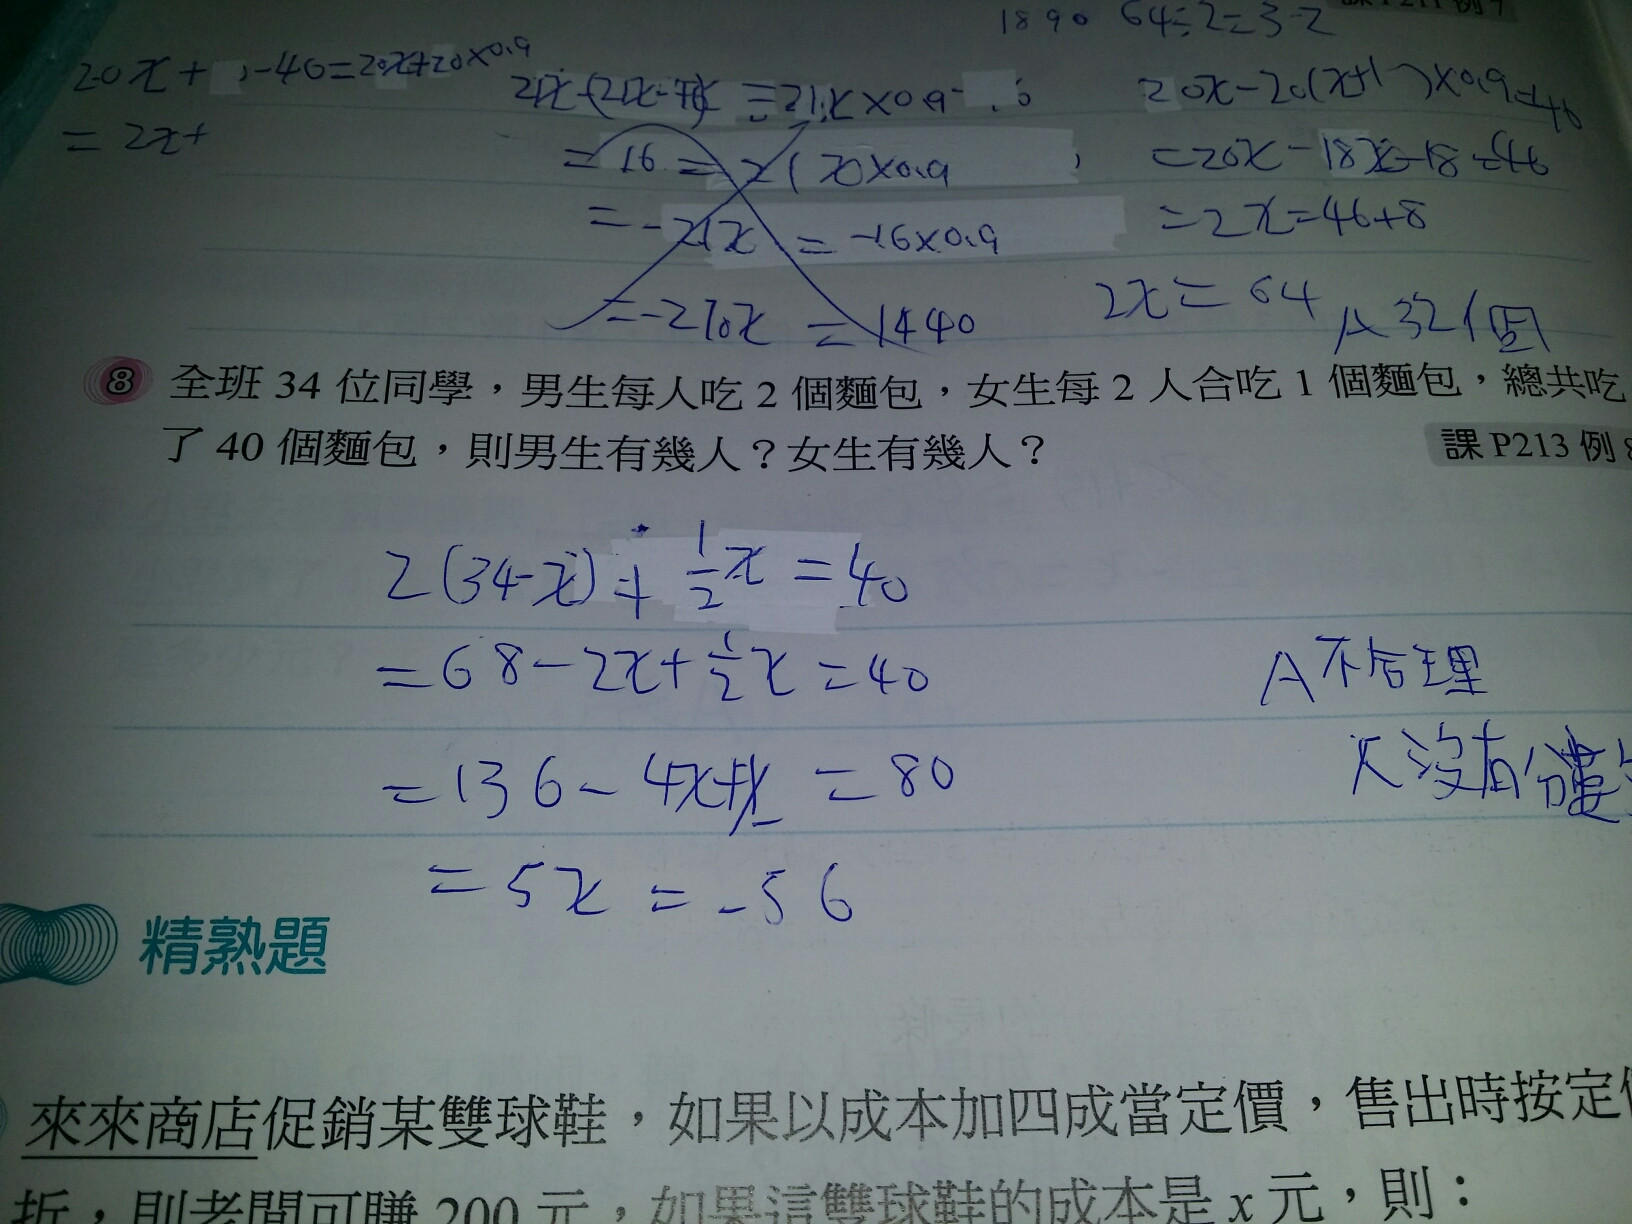 1890 64÷2=32
課 P211 例 7
20x+ -40=20x+20×0.9
=2x+
=21x×0.9-
=16=21x×0.9
=-21x=-16×0.9
=-270x=1440
20x-20(x+1)×0.9=46
=20x-18x-18=46
=2x=46+8
2x=64 A 32個
8 全班 34 位同學,男生每人吃 2 個麵包,女生每 2 人合吃 1 個麵包,總共吃
了 40 個麵包,則男生有幾人?女生有幾人?
課 P213 例 8
2(34-x)+½x=40
=68-2x+½x=40
A不合理
=136-4x+x=80
人沒有分數
=5x=-56
精熟題
來來商店促銷某雙球鞋,如果以成本加四成當定價,售出時按定價
折,則老闆可賺 200 元,如果這雙球鞋的成本是 x 元,則: